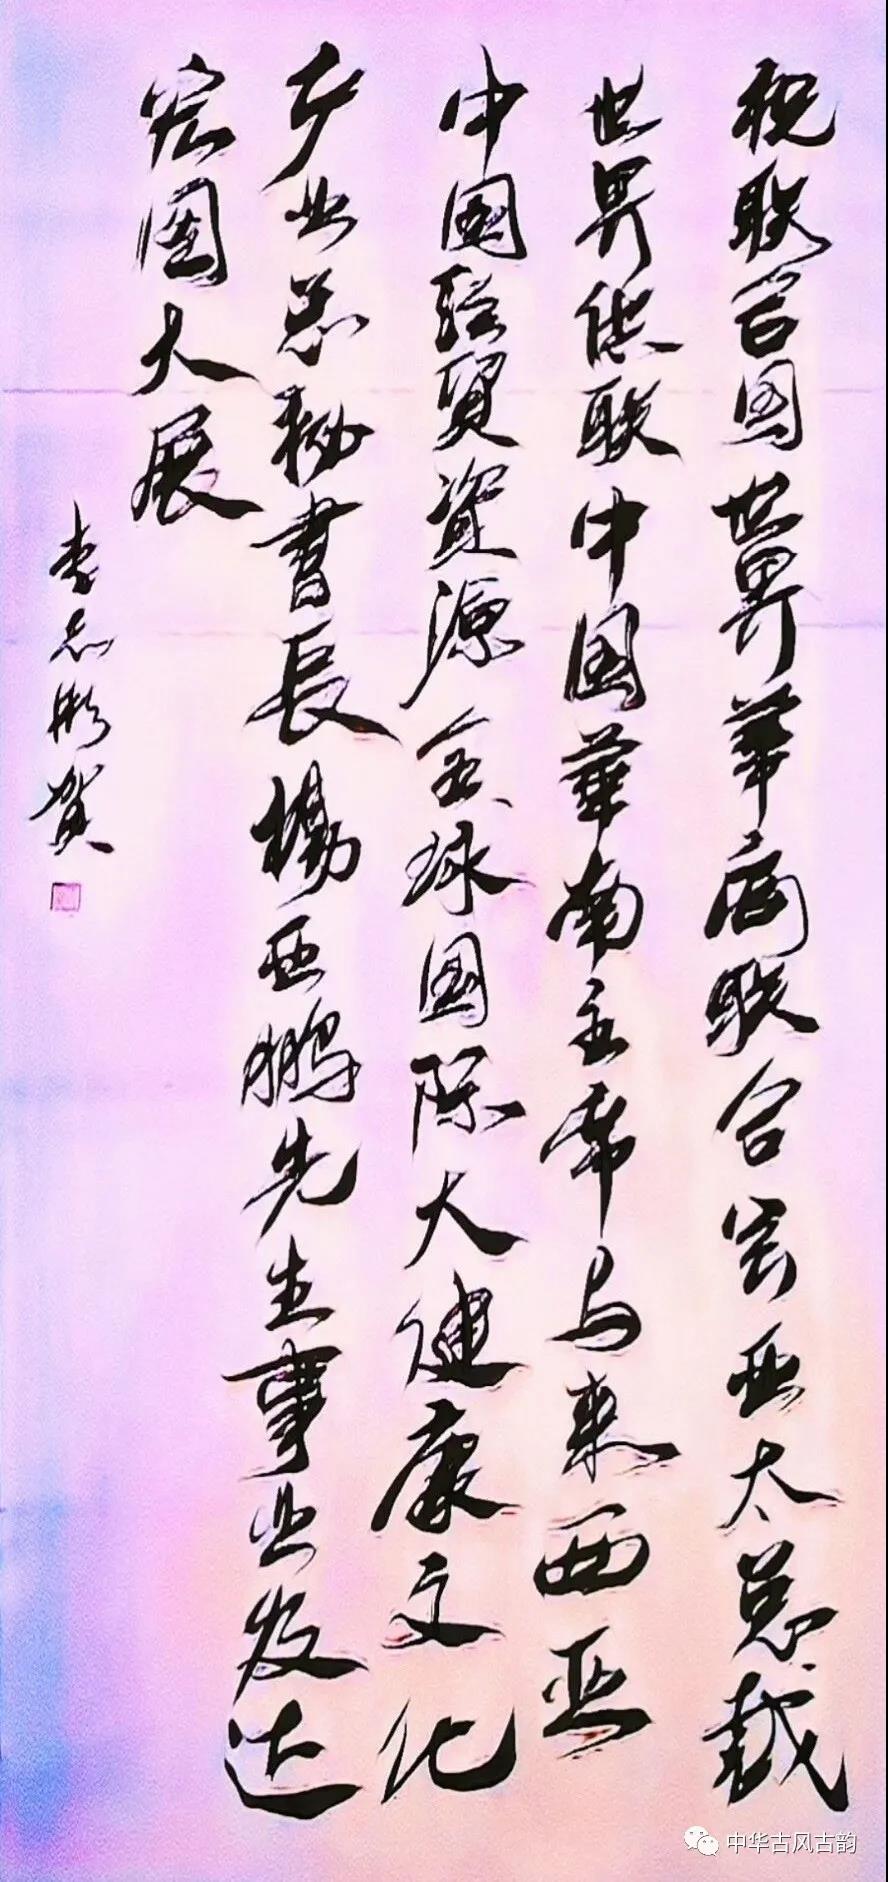 祝联合国世界華商联合会亚太总裁
世界供联中国華南主席馬来西亚
中国经贸資源全球国际大健康文化
产业总秘書長楊亚鹏先生事业发达
宏图大展
李志彬贺
中华古风古韵